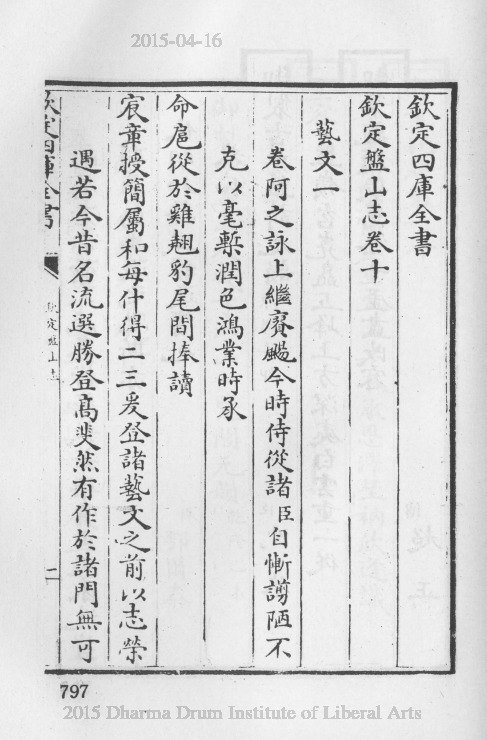 2015-04-16
欽定四庫全書
欽定盤山志卷十
藝文一
卷阿之詠上繼賡颺今時侍從諸臣自慚謭陋不
克以毫槧潤色鴻業時承
命扈從於雞翹豹尾間捧讀
宸章授簡屬和每什得二三爰登諸藝文之前以志榮
遇若今昔名流選勝登高斐然有作於諸門無可
欽定四庫全書
欽定盤山志
一
797
2015 Dharma Drum Institute of Liberal Arts